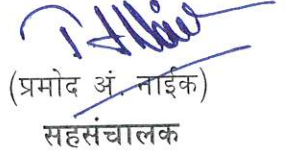 (प्रमोद अं. नाईक)
सहसंचालक